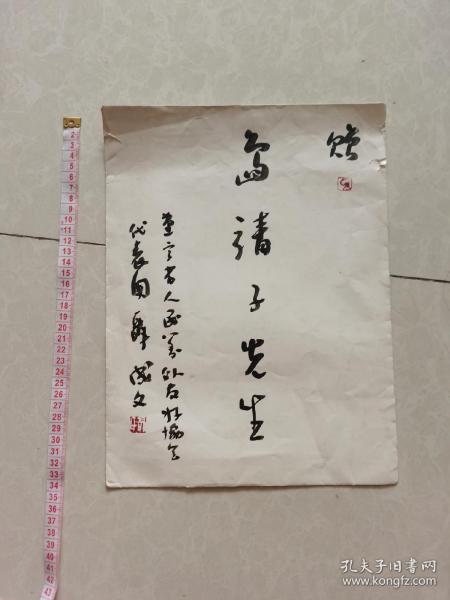 赠
島靖子先生
遼宁省人民对外友好協会
代表团 薛成文
2
3
4
5
6
7
8
9
10
11
12
13
14
15
16
17
18
19
20
21
22
23
24
25
26
27
28
29
30
31
32
33
34
35
36
37
38
39
40
41
42
43
孔夫子旧书网
www.kongfz.com